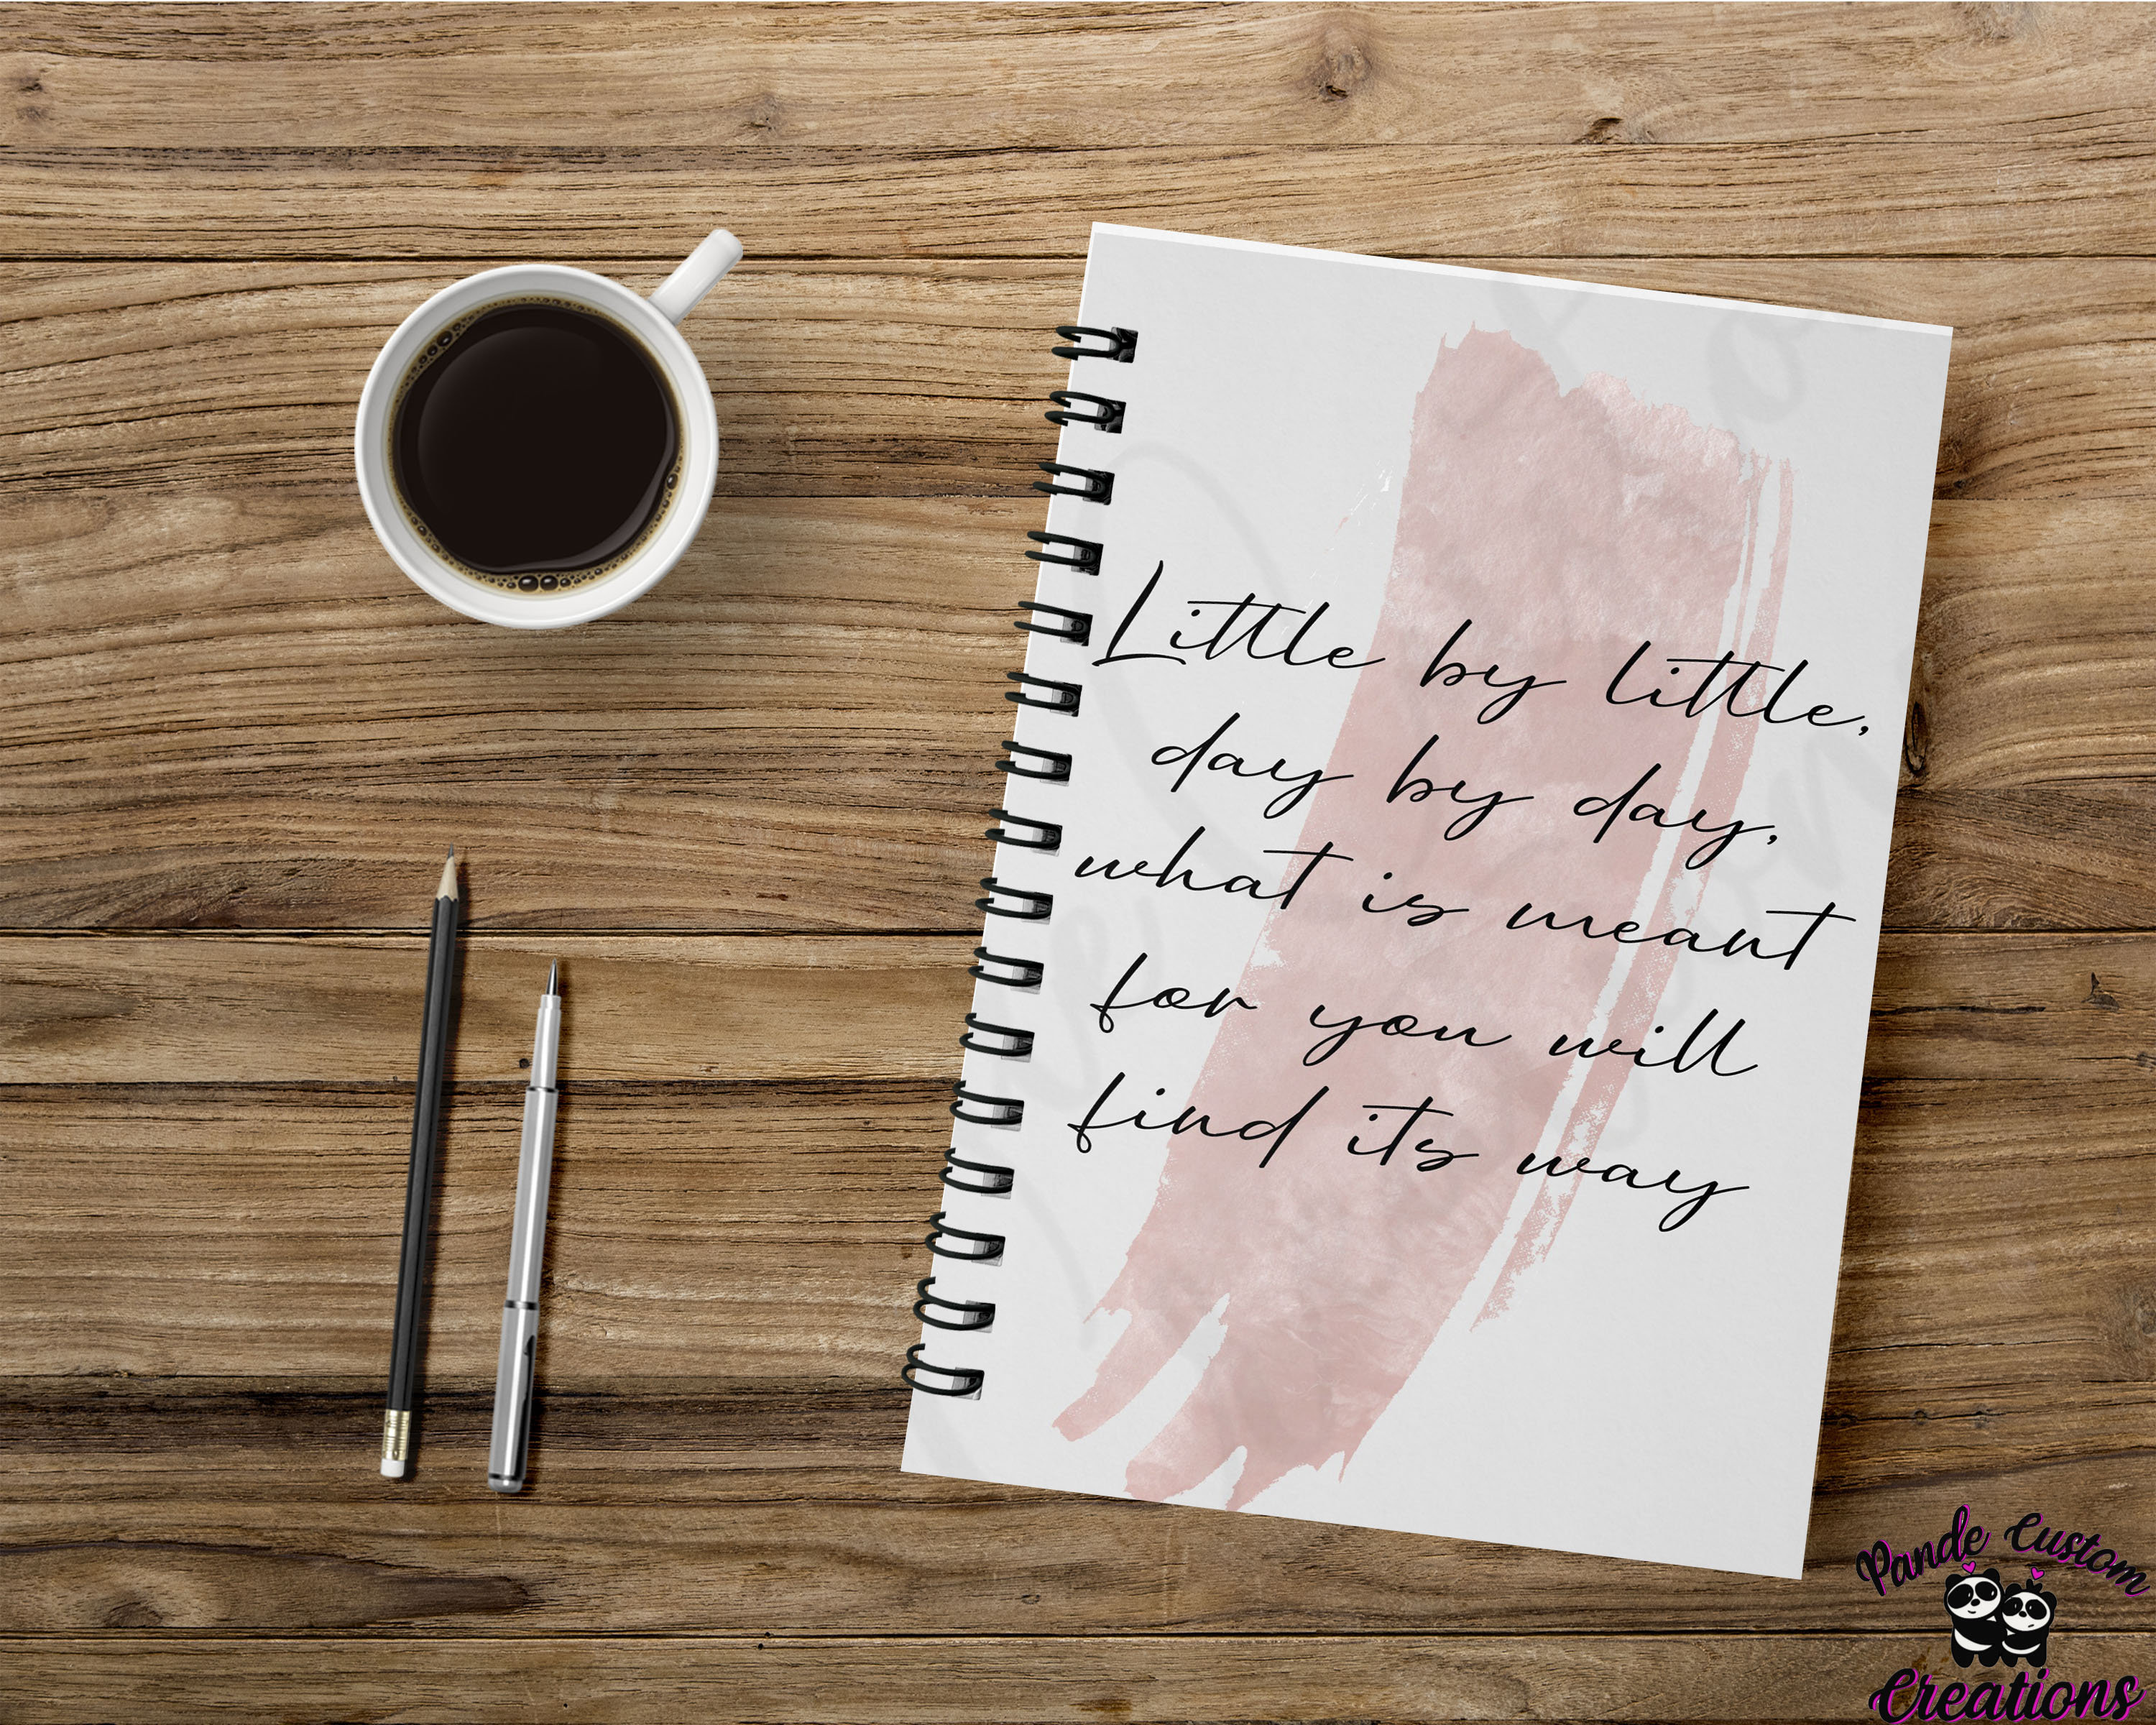 Little by little,
day by day,
what is meant
for you will
find its way
Pande Custom
Creations